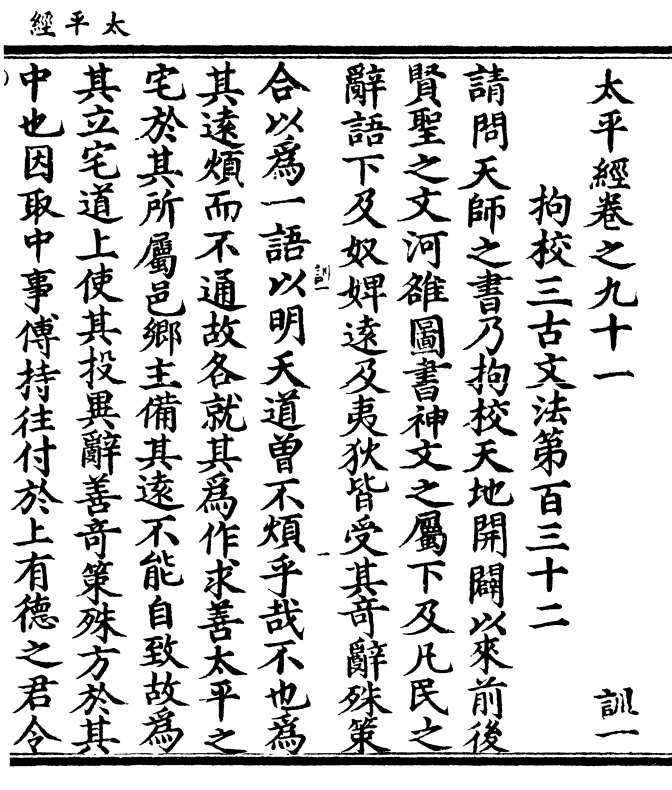 太平經
太平經卷之九十一 訓一
拘校三古文法第百三十二
請問天師之書乃拘校天地開闢以來前後
賢聖之文河雒圖書神文之屬下及凡民之
辭語下及奴婢遠及夷狄皆受其竒辭殊策
合以爲一語以明天道曾不煩乎哉不也爲
訓一
其遠煩而不通故各就其爲作求善太平之
宅於其所屬邑鄉主備其遠不能自致故爲
其立宅道上使其投異辭善竒策殊方於其
中也因取中事傅持往付於上有德之君令